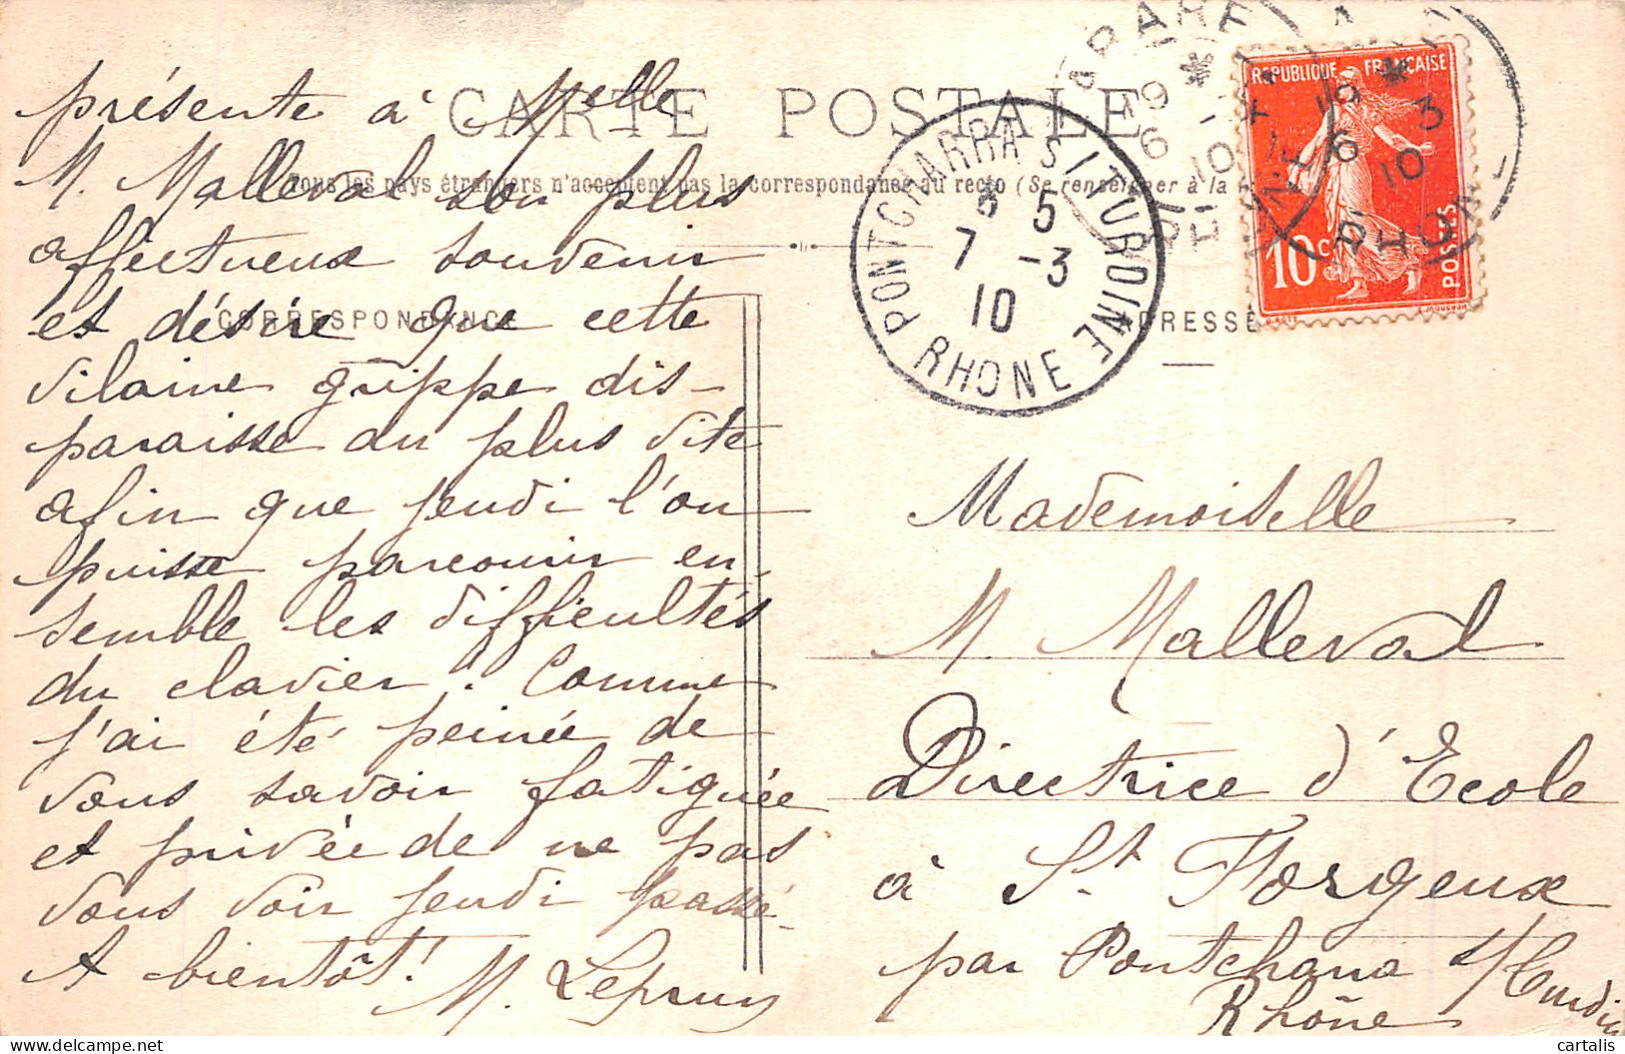 CARTE POSTALE
Tous les pays étrangers n'acceptent pas la correspondance au recto (Se renseigner à la
CORRESPONDANCE
ADRESSE
présente à Melle
M. Malleval son plus
affectueux souvenir
et désire que cette
vilaine grippe dis-
paraisse au plus vite
afin que jeudi l'on
puisse parcourir en-
semble les difficultés
du clavier. Comme
j'ai été peinée de
vous savoir fatiguée
et privée de ne pas
vous voir jeudi passé.
A bientôt! M.
Mademoiselle
M. Malleval
Directrice d'Ecole
à St. Forgeux
par Pontcharra s/Turdine
Rhône
PONTCHARRA S/TURDINE
5
7 -3
10
RHONE
TARARE
RHONE
19
6 3
10
REPUBLIQUE FRANÇAISE
10c
POSTES
delcampe.net
cartalis